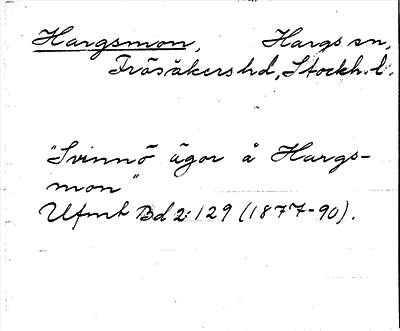 Hargsmon, Hargs sn,
Frösåkers hd, Stockh. l.
"Svinnö ägor å Hargs-
mon"
Ufmt Bd 2:129 (1877-90).